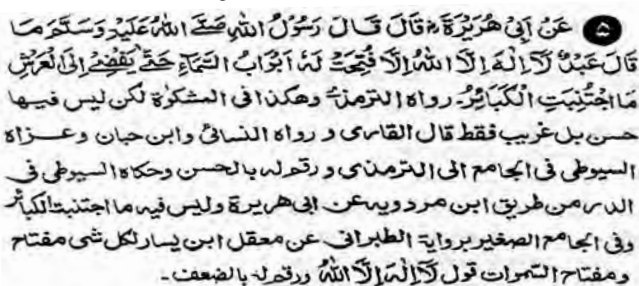 ۵ عَنْ اَبِیْ هُرَیْرَةَ رض قَالَ قَالَ رَسُوْلُ اللهِ صَلَّے اللهُ عَلَیْهِ وَسَلَّمَ مَا
قَالَ عَبْدٌ لَآ اِلٰهَ اِلَّا اللهُ اِلَّا فُتِحَتْ لَهٗ اَبْوَابُ السَّمَآءِ حَتّٰے یُفْضِیَ اِلَی الْعَرْشِ
مَا اجْتُنِبَتِ الْکَبَائِرُ۔ رواه الترمذی وهکذا فی المشکوٰة لکن لیس فیها
حسن بل غریب فقط قال القاری و رواه النسائی وابن حبان وعزاه
السیوطی فی الجامع الی الترمذی ورقم له بالحسن وحکاه السیوطی فی
الدر من طریق ابن مردویه عن ابی هریرة ولیس فیه ما اجتنبت الکبائر
وفی الجامع الصغیر بروایة الطبرانی عن معقل ابن یسار لکل شی مفتاح
ومفتاح السموات قول لَآ اِلٰهَ اِلَّا اللهُ ورقم له بالضعف۔